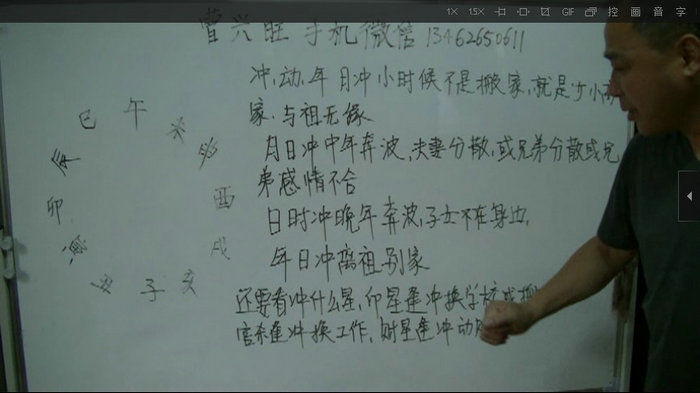 1X 1.5X GIF 控 画 音 字
曹兴旺 手机微信 13462650611
冲,动,年日冲小时候不是搬家,就是少小离
家,与祖无缘
月日冲中年奔波,夫妻分散,或兄弟分散或兄
弟感情不合
日时冲晚年奔波,子女不在身边,
年日冲离祖别家
还要看冲什么星,印星逢冲换学校或搬
官杀逢冲换工作,财星逢冲动
巳 午 未
辰 酉
卯 戌
丑 子 亥